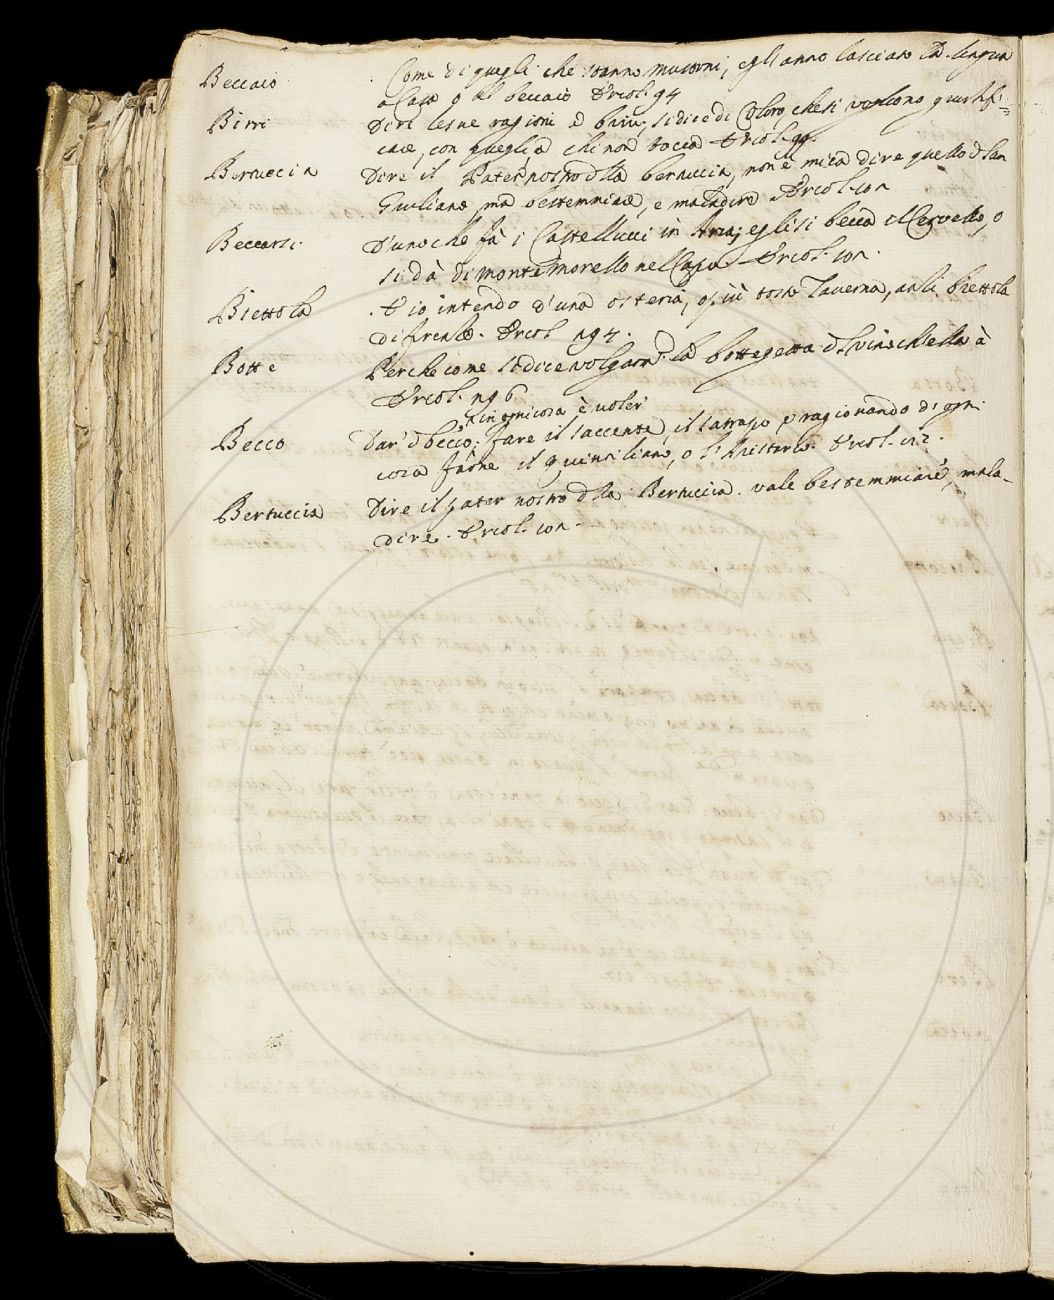 Beccaio Come di quegli che stanno mutorni, egli anno lasciato la lingua
a Casa o al beccaio Ercol. 94
Birri Dire le sue ragioni a birri, si dice di Coloro, che si vogliono giustifi=
care, con quegli a chi non tocca Ercol. 99.
Bertuccia Dire il Pater nostro della bertuccia, non è mica dire quello di San
Giuliano, ma bestemmiare, e maladire Ercol. 101
Beccarsi. D'uno che fà i Castellucci in Aria, egli si becca il Cervello, o
si dà di monte morello nel Capo Ercol. 101.
Biettola . Dio intendo d'una osteria, o più tosto Taverna, anzi biettola
di firenze. Ercol. 194.
Botte Perche come si dice volgarm. la botte getta del vino ch'ella à
Ercol. 196
Becco Dar di becco in ogni cosa, è voler
fare il saccente, il satrapo e ragionando d'ogni
cosa farne il Quintiliano, o l'Aristarco. Ercol. 112.
Bertuccia Dire il pater nostro della Bertuccia. vale bestemmiare, mala-
dire. Ercol. 101.